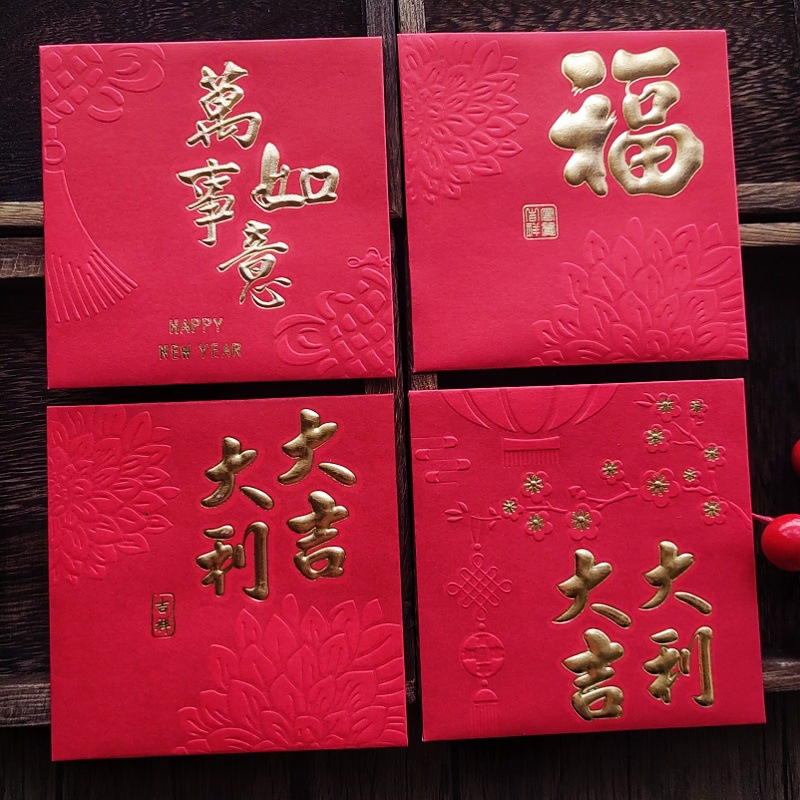 萬事
如意
HAPPY
NEW YEAR
福
富貴
吉祥
大吉
大利
吉祥
大吉
大利